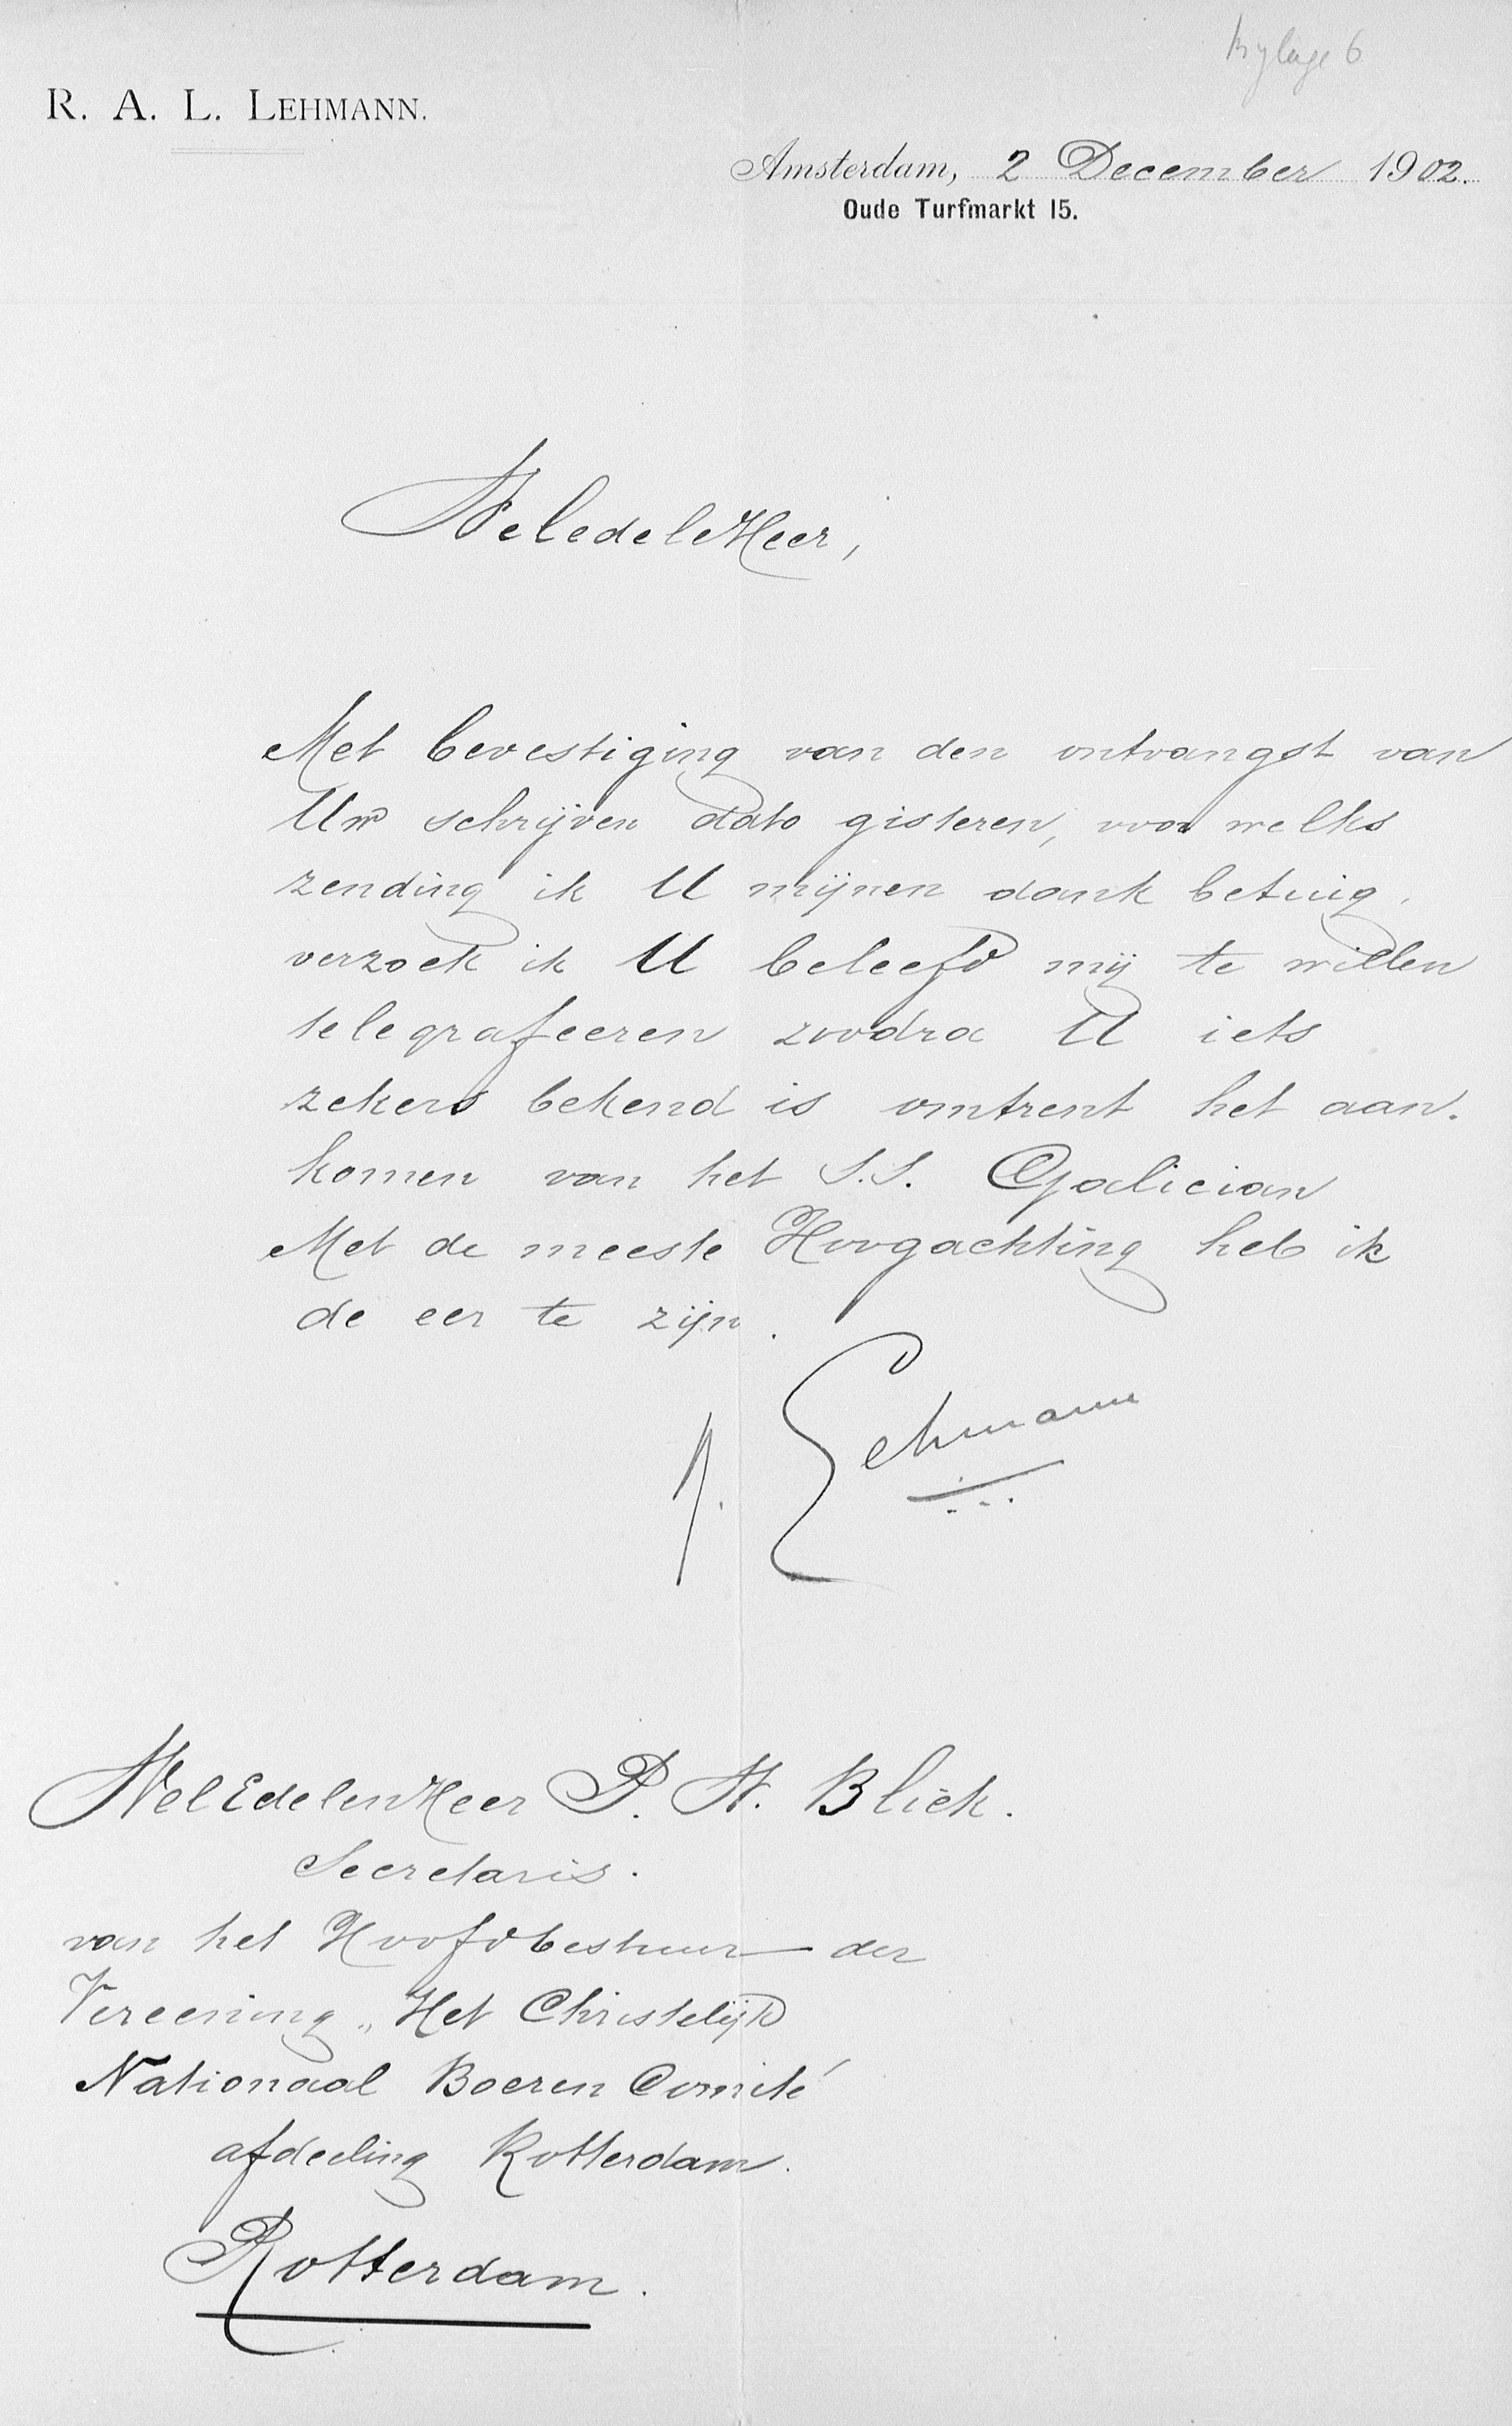 Bylage 6
R. A. L. LEHMANN.
Amsterdam, 2 December 1902.
Oude Turfmarkt 15.
WeledeleHeer,
Met bevestiging van den ontvangst van
Uw schrijven dato gisteren, voor welks
zending ik U mijnen dank betuig,
verzoek ik U beleefd mij te willen
telegrafeeren zoodra U iets
zekers bekend is omtrent het aan-
komen van het S.S. Galician
Met de meeste Hoogachting heb ik
de eer te zijn.
Lehmann
WelEdelenHeer P. W. Bliek.
Secretaris.
van het Hoofdbestuur der
Vereening „Het Christelijk
Nationaal Boeren Comité
afdeeling Rotterdam.
Rotterdam.